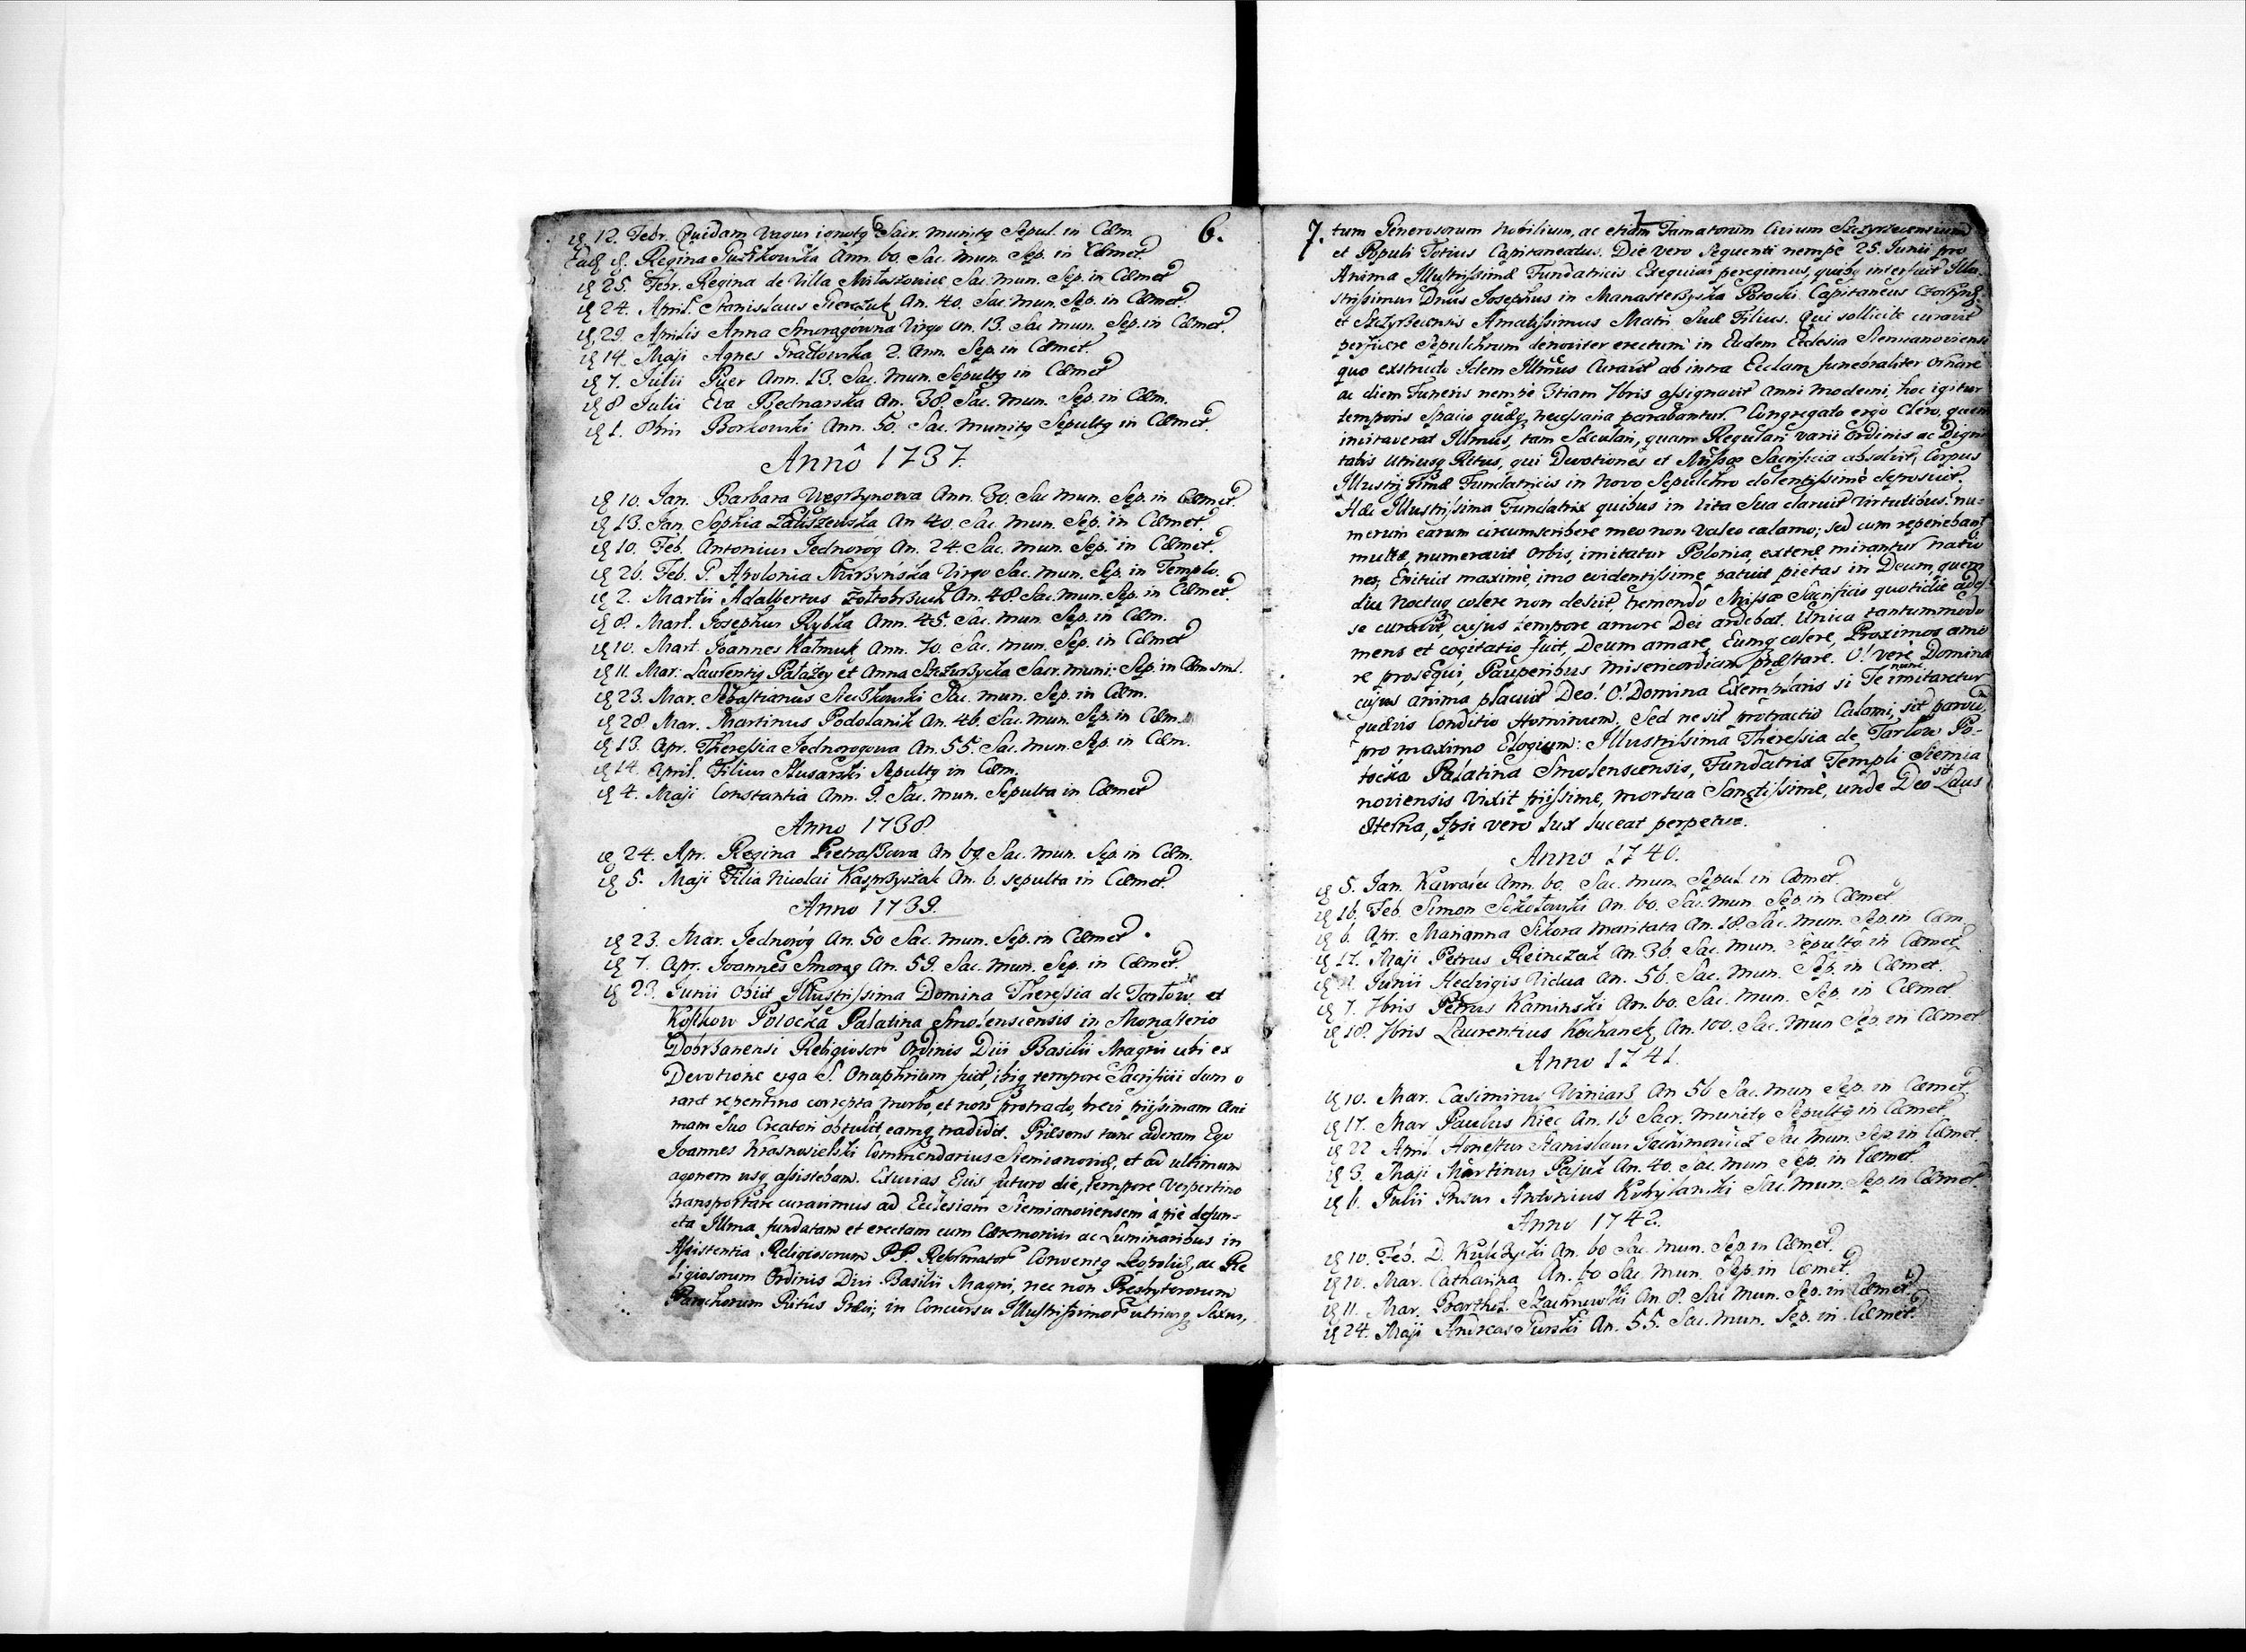 6
6.
12. Febr. Quidam Vagus ignotq Sacr. munitq Sepul. in Cæm.
Ead d. Regina Ann. 60. Sac. Mun. Sep. in Cæmet.
25. Febr. Regina de Villa Sac. mun. Sep. in Cæmet
24. April. Stanislaus An. 40. Sac. mun. Sep. in Cæmet.
29. Aprilis Anna Smoragówna Virgo An. 13. Sac mun. Sep. in Cæmet.
14. Maji Agnes 2. Ann. Sep. in Cæmet.
7. Julii Puer Ann. 13. Sac. Mun. Sepultq in Cæmet
8 Julii Eva Bednarska An. 38. Sac. Mun. Sep. in Cæm.
1. Borkowski Ann. 50. Sac. Munitq Sepultq in Cæmet.
Annô 1737.
10. Jan. Barbara Węgrzynowa Ann. 30. Sac mun. Sep. in Cæmet.
13. Jan. Sophia Zaliszewska An 40. Sac. Mun. Sep. in Cæmet.
10. Feb. Antonius Jednoróg An. 24. Sac. mun. Sep. in Cæmet.
26. Feb. P. Apolonia Virgo Sac. mun. Sep. in Templo.
2. Martii Adalbertus An. 48 Sac. mun. Sep. in Cæmet.
8. Mart. Josephus Rybka Ann. 45. Sac. mun. Sep. in Cæm.
10. Mart. Joannes Kałmuk Ann. 70. Sac. mun. Sep. in Cæmet
11. Mar. Laurentiq et Anna Sacr. muni. Sep. in Cæm
23. Mar. Sebastianus Sac. mun. Sep. in Cæm.
28 Mar. Martinus Podolanik An. 46. Sac. mun. Sep. in Cæm.
13. Apr. Theressia Jednorogowa An. 55. Sac. mun. Sep. in Cæm.
14. April. Filius Slusarski Sepultq in Cæm.
4. Maji Constantia Ann. 9. Sac. mun. Sepulta in Cæmet
Anno 1738
24. Apr. Regina Pietraszowa An 69. Sac. mun. Sep. in Cæm.
5. Maji Filia Nicolai Kasprzyszak An. 6. sepulta in Cæmet.
Anno 1739.
23. Mar. Jednoróg An. 50 Sac. mun. Sep. in Cæmet.
7. Apr. Joannes Smorąg An. 59. Sac. Mun. Sep. in Cæmet.
23. Junii Obiit Illustrissima Domina Theressia de Tarłow et
Kostkow Potocka Palatina Smolenscensis in Monasterio
Dobrzanensi Religiosor Ordinis Divi Basilii Magni ubi ex
Devotione erga S. Onuphrium fuit, ibiq tempore Sacrificii dum o
raret repentino correpta morbo, et non protracto, brevi piissimam Ani
mam Suo Creatori obtulit eamq tradidit. Præsens tunc aderam Ego
Joannes Krasnosielski Commendarius Siemianoviæ, et ad ultimum
agonem usq assistebam. Exuvias Ejus futuro die, tempore Vespertino
transportare curavimus ad Ecclesiam Siemianoviensem à piè defun-
cta Illma fundatam et erectam cum Cæremoniis ac Luminaribus in
Assistentia Religiosorum PP Reformator Conventq Leopoliæ, ac Re
ligiosorum Ordinis Divi Basilii Magni, nec non Presbyterorum
Parochorum Ritûs Græci, in Concursu Illustrissimor utriusq Sexus,
7
7. tum Generosorum Nobilium, ac etiam Famatorum Civium Szczyrzecensium
et Populi Totius Capitaneatus. Die vero Sequenti nempè 25. Junii pro
Anima Illustrissimæ Fundatricis Exequias peregimus, quibq interfuit Illu
strissimus Dnus Josephus in Manasterzyska Potocki Capitaneus
et Szczyrzecensis Amatissimus Matri Suæ Filius. Qui sollicite curavit
perficere Sepulchrum denoviter erectum in Eadem Ecclesia Siemianoviensi
quo exstructo Idem Illmus Curavit ab intra Ecclam funebraliter ornare
ac diem Funeris nempè 3tiam 7bris assignavit Anni moderni, hoc igitur
temporis Spacio quæq necessaria parabantur. Congregato ergo Clero, quem
invitaverat Illmus, tam Sæculari, quam Regulari varii Ordinis ac Digni
tatis Utriusq Ritus, qui Devotiones et Missæ Sacrificia absolvit, Corpus
Illustrissimæ Fundatricis in Novo Sepulchro dolentissimè deposuit.
Hæc Illustrissima Fundatrix quibus in Vita Sua claruit Virtutibus nu=
merum earum circumscribere meo non valeo calamo; sed cum reperiebant
multæ, numeravit Orbis, imitatur Polonia, exteræ mirantur natio
nes, Enituit maximè, imo evidentissime patuit pietas in Deum, quem
diu noctuq colere non desiit, tremendo Missæ Sacrificio quotidie ades
se curavit cujus tempore amore Dei ardebat. Unica tantummodo
mens et cogitatio fuit, Deum amare, Eumq colere, Proximos amo
re prosequi, Pauperibus misericordiam præstare. O! verè Domina
cujus anima placuit Deo! O! Domina Exemplaris si Te nunc imitaretur
quævis Conditio Hominum. Sed ne sit protractio Calami, sit parvu
pro maximo Elogium: Illustrissima Theressia de Tarłow Po-
tocka Palatina Smolenscensis, Fundatrix Templi Siemia
noviensis Vixit piissime, mortua Sanctissimè, unde Deo sit Laus
Æterna, Ipsi vero Lux luceat perpetua.
Anno 1740.
5. Jan. Ann. 60. Sac. mun. Sepul. in Cæmet.
16. Feb. Simon An. 60. Sac. mun. Sep. in Cæmet
6. Apr. Marianna Sikora Maritata An. 18. Sac. mun. Sep. in Cæm
17. Maji Petrus An. 36. Sac. mun. Sepultq in Cæmet.
Junii Hedvigis Vidua An. 56. Sac. mun. Sep. in Cæmet.
7. 7bris Petrus Kaminski An. 60. Sac. mun. Sep. in Cæmet.
18. 7bris Laurentius Kochanek An. 100. Sac. Mun Sep. in Cæmet
Anno 1741.
10. Mar. Casimirus Winiarz An 56 Sac. mun Sep. in Cæmet.
17. Mar Paulus Kiec An. 16 Sacr. munitq Sepultq in Cæmet
22 April Honestus Stanislaus Sac mun. Sep. in Cæmet.
3. Maji Martinus Pająk An. 40. Sac. mun Sep. in Cæmet
6. Julii Antonius Sac. mun. Sep in Cæmet.
Anno 1742.
10. Feb. D. Kulczycki An. 60 Sac. mun. Sep in Cæmet.
10. Mar. Catharina An. 60 Sac. mun. Sep. in Cæmet.
11. Mar. Barthol. An 8. Sac mun. Sep. in Cæmet.
24. Maji Andreas An. 55. Sac. mun. Sep. in Cæmet.